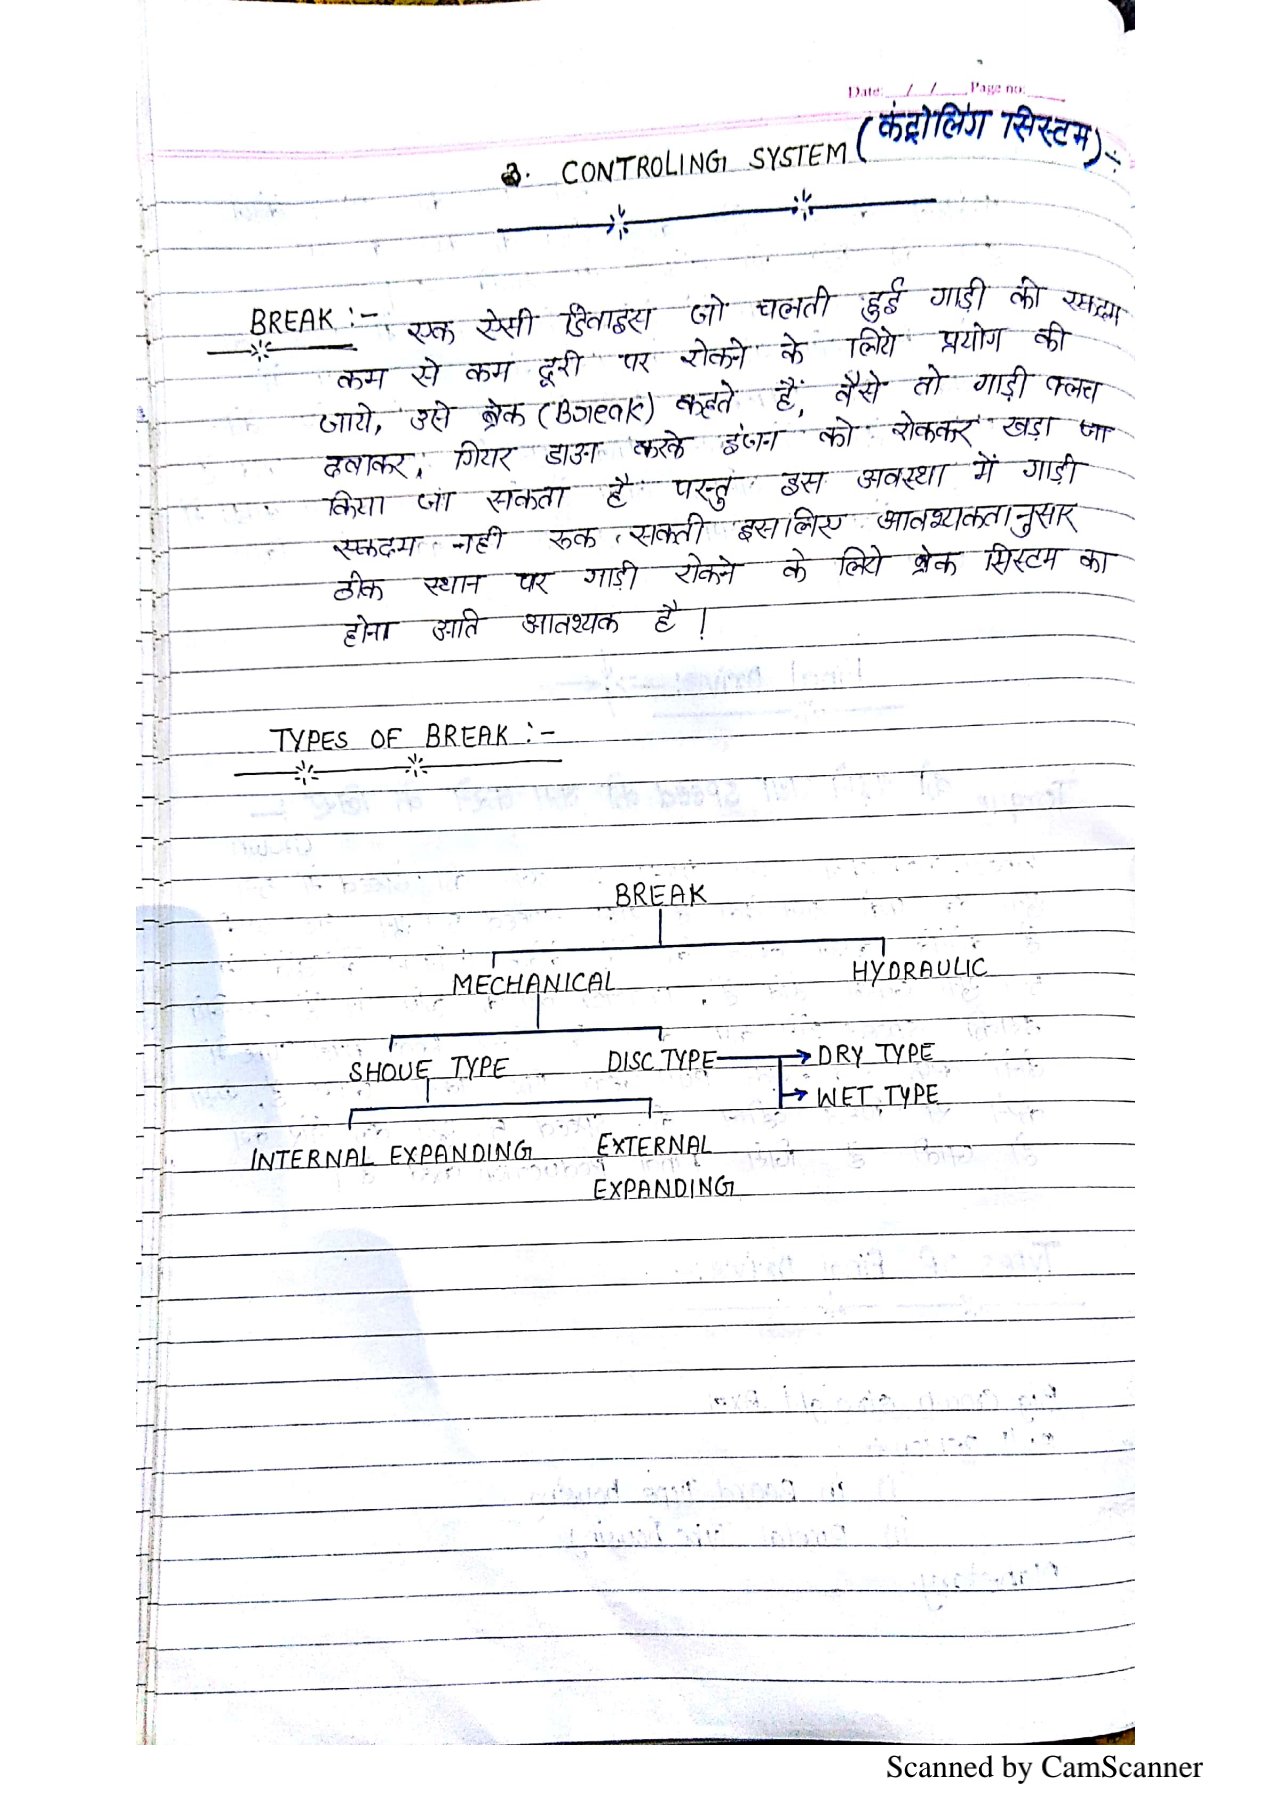 Date: / / Page no:
3. CONTROLING SYSTEM (कंट्रोलिंग सिस्टम) :-
BREAK :- एक ऐसी डिवाइस जो चलती हुई गाड़ी को एकदम
कम से कम दूरी पर रोकने के लिये प्रयोग की
जाये, उसे ब्रेक (Break) कहते हैं, वैसे तो गाड़ी क्लच
दबाकर, गियर डाउन करके इंजन को रोककर खड़ा जा
किया जा सकता है परन्तु इस अवस्था में गाड़ी
एकदम नही रूक सकती इसलिए आवश्यकतानुसार
ठीक स्थान पर गाड़ी रोकने के लिये ब्रेक सिस्टम का
होना अति आवश्यक है !
TYPES OF BREAK :-
BREAK
MECHANICAL HYDRAULIC
SHOUE TYPE DISC TYPE DRY TYPE
WET TYPE
INTERNAL EXPANDING EXTERNAL
EXPANDING
Scanned by CamScanner